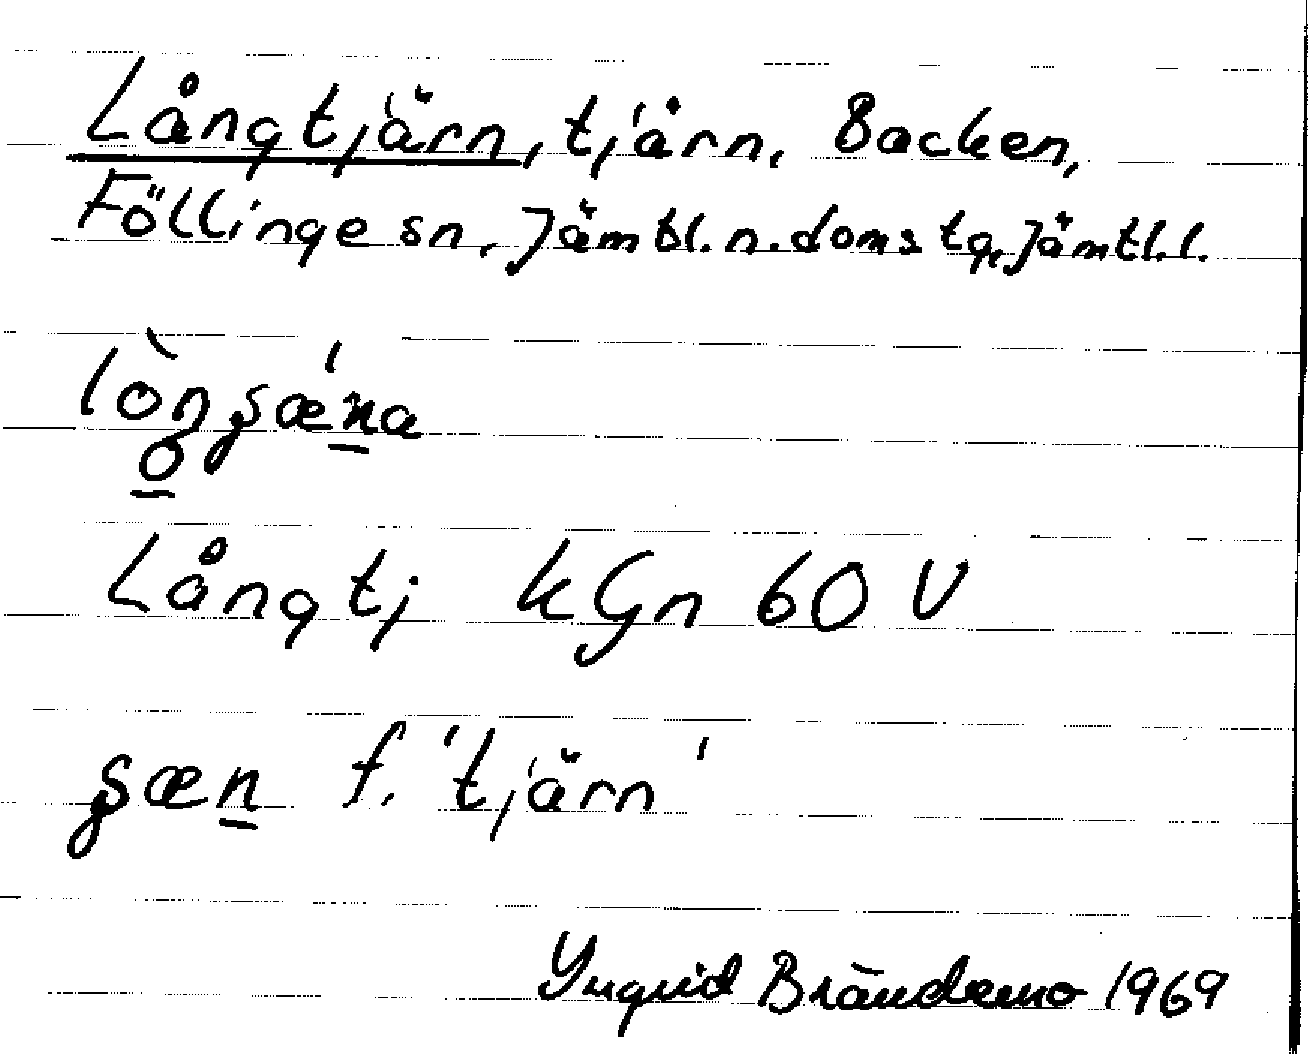 Långtjärn, tjärn, Backen,
Föllinge sn, Jämtl. n. doms tg, Jämtl. l.
Långtj kGn 60 V
f. 'tjärn'
Yngvid Brändemo 1969